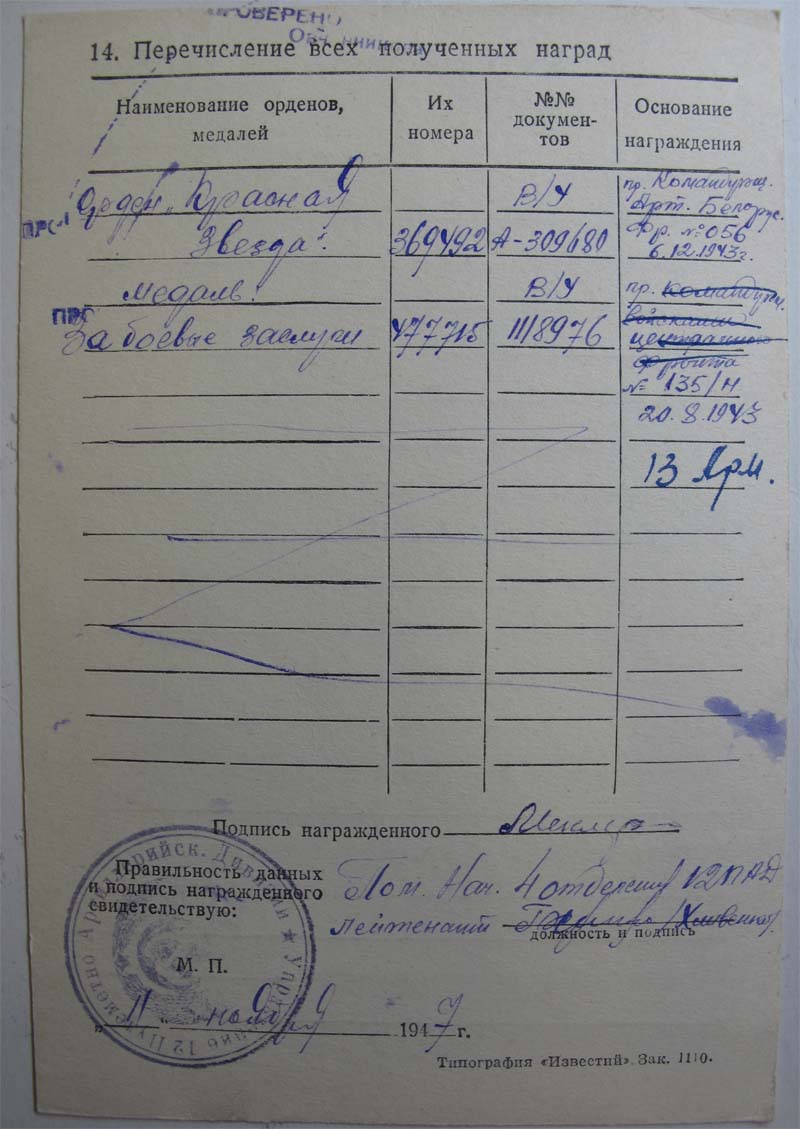 ПРОВЕРЕНО
14. Перечисление всех полученных наград
Наименование орденов, медалей
Их номера
№№ документов
Основание награждения
Орден „Красная
В/У
пр. Командующ.
Арт. Белорус.
ПРС
Звезда".
369492
А-309680
Фр. № 056
6.12.1943г.
медаль:
В/У
пр. командующ.
ПРС
За боевые заслуги
477715
1118976
войсками
центрального
фронта
№ 135/н
20.8.1943
13 Арм.
Подпись награжденного
Правильность данных
и подпись награжденного
свидетельствую:
Пом. Нач. 4 отделения 12 ПАД
лейтенант
должность и подпись
М. П.
Управление 12 Пулеметно Артиллерийск. Дивизии
„11" ноября 1947 г.
Типография «Известий». Зак. 1110.